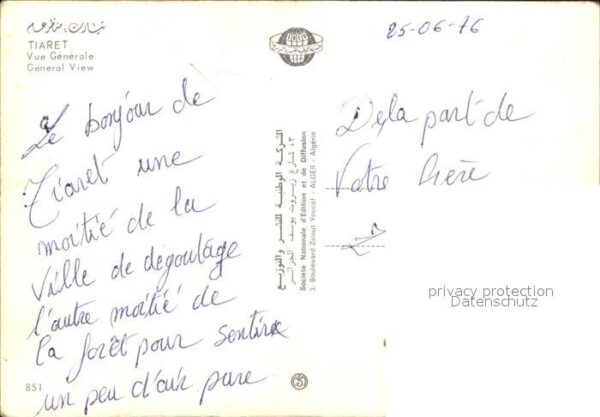 تيارت: منظر عام
TIARET
Vue Générale
General View
25-06-76
Le bonjour de
Tiaret une
moitié de la
Ville de dégoutage
l'autre moitié de
la forêt pour sentire
un peu d'air pure
851
الشركة الوطنية للنشر والتوزيع
٣، شارع زيروت يوسف الجزائر
Société Nationale d'Edition et de Diffusion
3, Boulevard Zirout Youcef - ALGER - Algérie
De la part de
Votre frère
privacy protection
Datenschutz